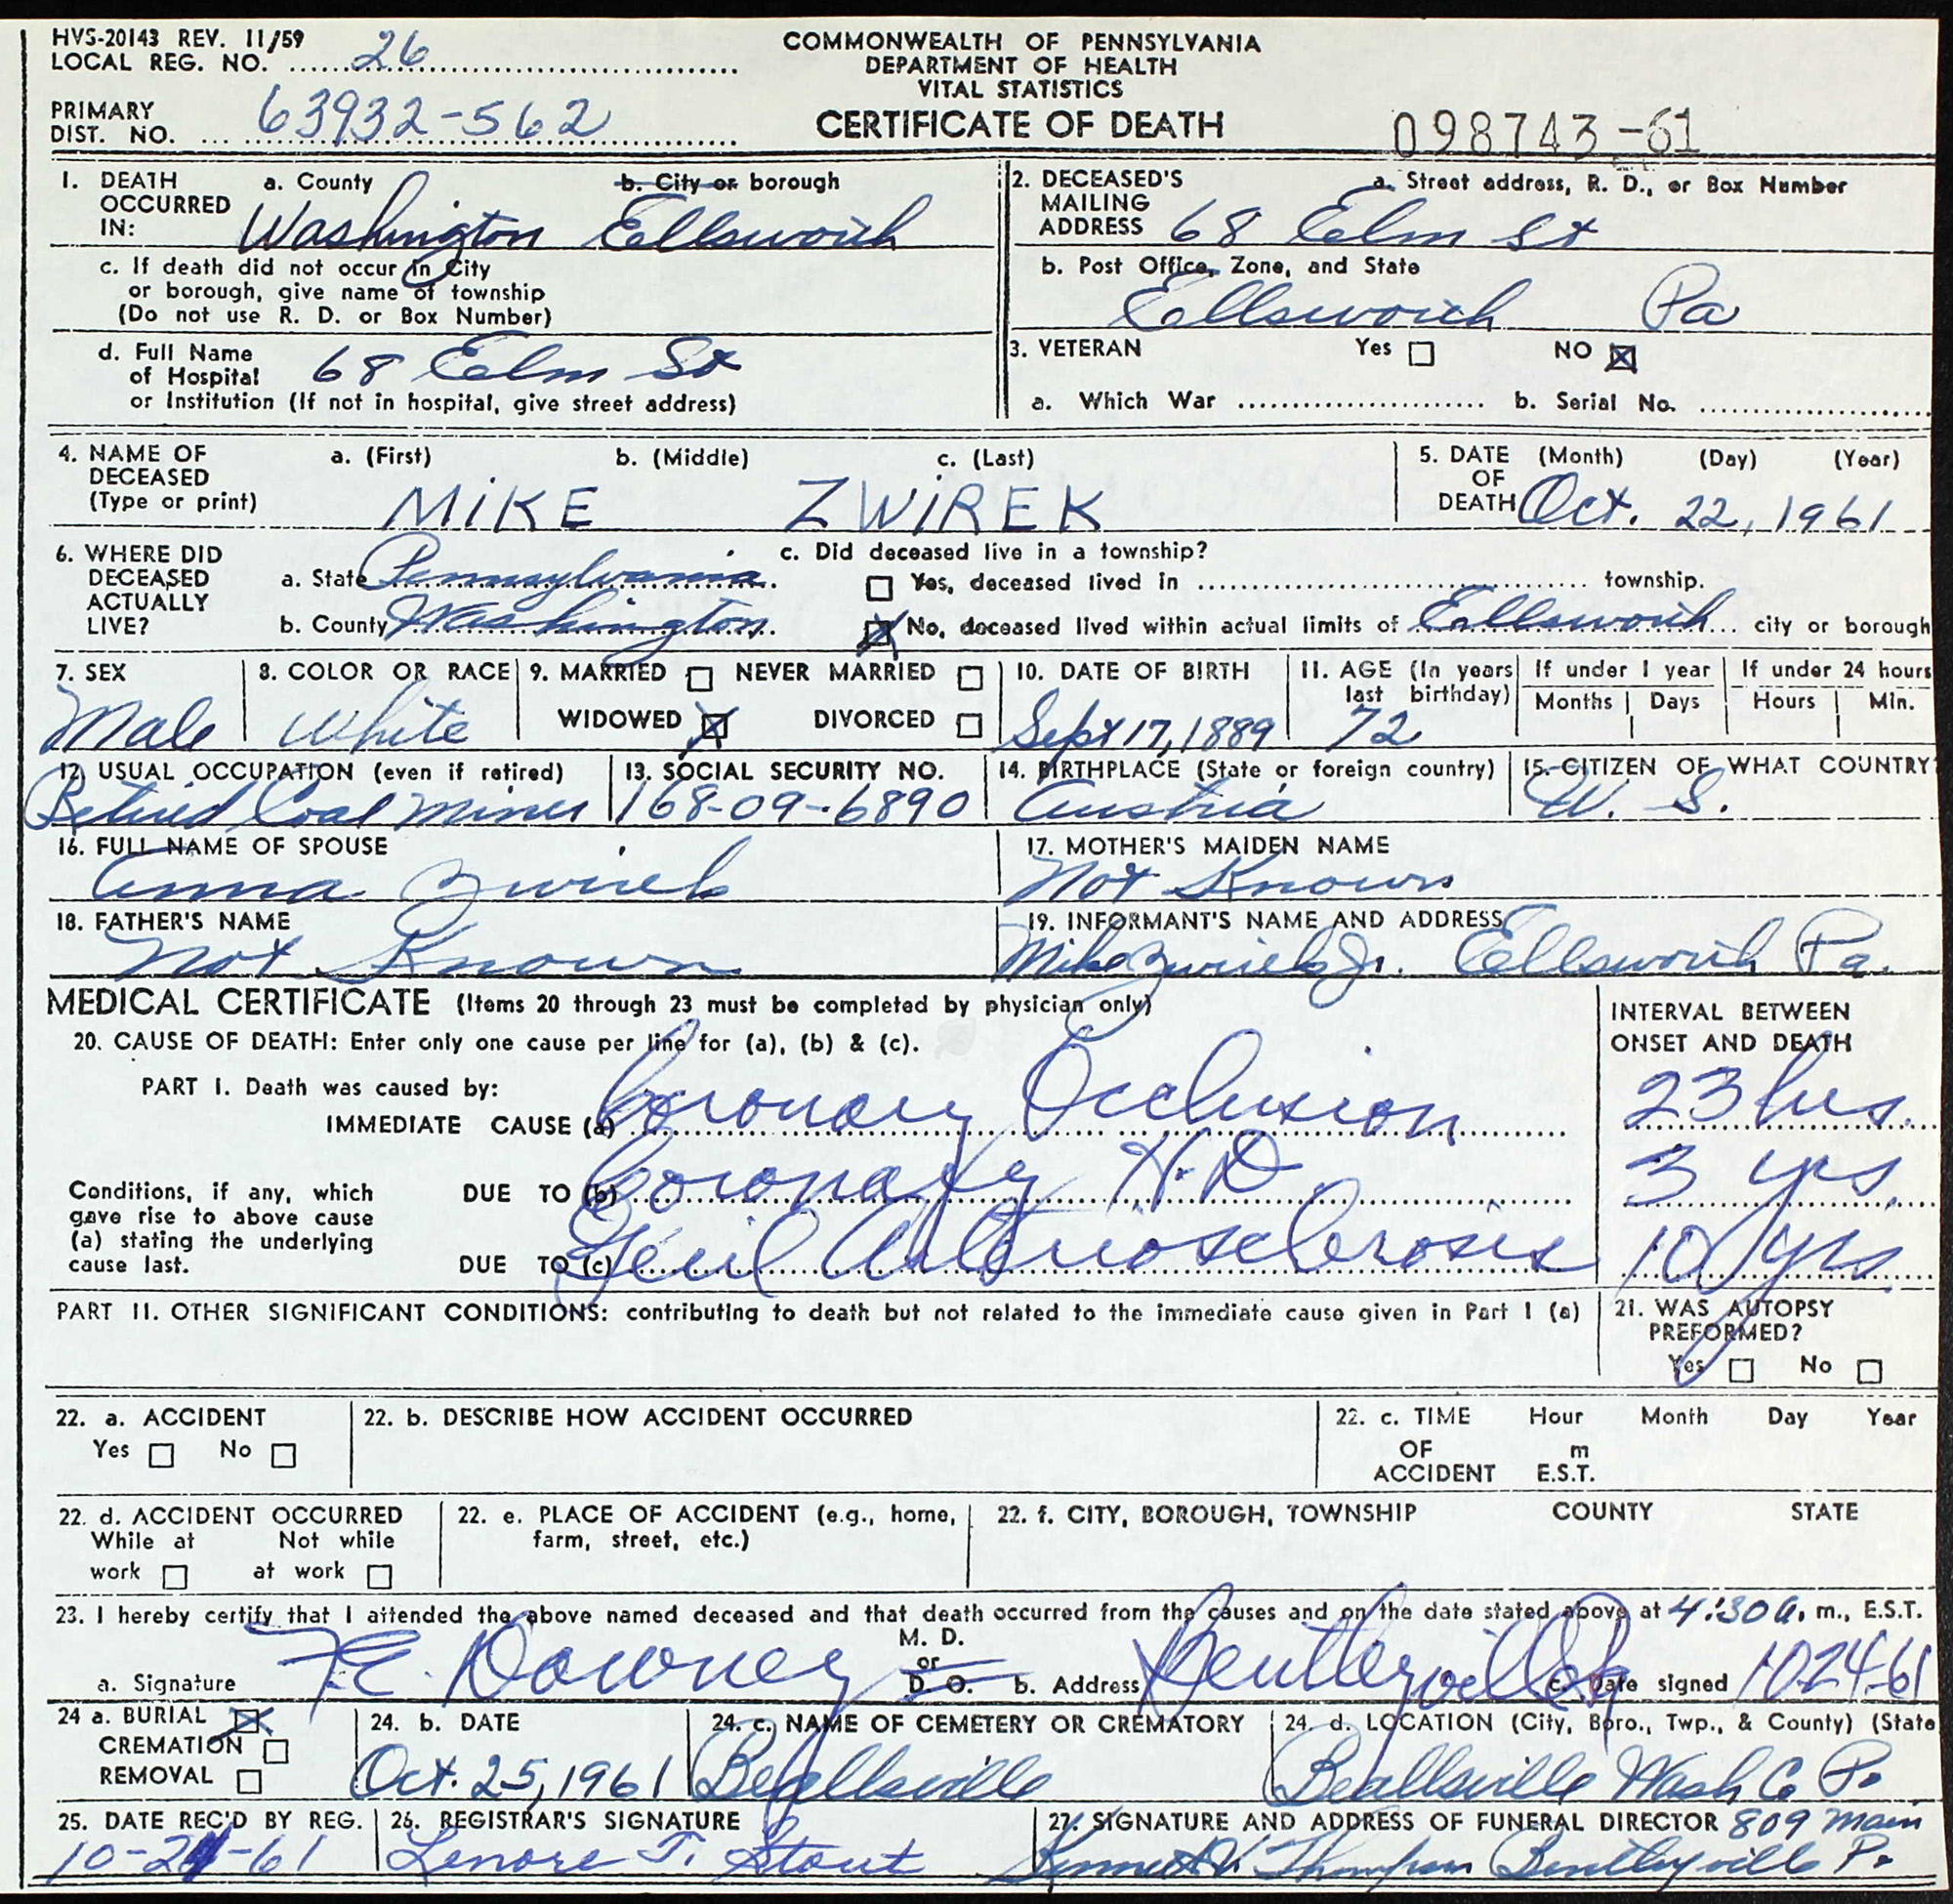 HVS-20143 REV. 11/59
LOCAL REG. NO. 26
COMMONWEALTH OF PENNSYLVANIA
DEPARTMENT OF HEALTH
VITAL STATISTICS
PRIMARY
DIST. NO. 63932-562
CERTIFICATE OF DEATH
098743-61
1. DEATH OCCURRED IN:
a. County
Washington
b. City or borough
Ellsworth
2. DECEASED'S MAILING ADDRESS
a. Street address, R. D., or Box Number
68 Elm St
c. If death did not occur in City
or borough, give name of township
(Do not use R. D. or Box Number)
b. Post Office, Zone, and State
Ellsworth Pa
d. Full Name
of Hospital 68 Elm St
or Institution (If not in hospital, give street address)
3. VETERAN Yes NO
a. Which War b. Serial No.
4. NAME OF
DECEASED
(Type or print)
a. (First) b. (Middle) c. (Last)
MIKE ZWIREK
5. DATE OF DEATH (Month) (Day) (Year)
Oct. 22, 1961
6. WHERE DID
DECEASED
ACTUALLY
LIVE?
a. State Pennsylvania
b. County Washington
c. Did deceased live in a township?
Yes, deceased lived in township.
No, deceased lived within actual limits of Ellsworth city or borough
7. SEX
Male
8. COLOR OR RACE
White
9. MARRIED NEVER MARRIED
WIDOWED DIVORCED
10. DATE OF BIRTH
Sept 17, 1889
11. AGE (In years
last birthday)
72
If under 1 year
Months Days
If under 24 hours
Hours Min.
12. USUAL OCCUPATION (even if retired)
Retired Coal Miner
13. SOCIAL SECURITY NO.
168-09-6890
14. BIRTHPLACE (State or foreign country)
Austria
15. CITIZEN OF WHAT COUNTRY?
U. S.
16. FULL NAME OF SPOUSE
Anna Zwirek
17. MOTHER'S MAIDEN NAME
Not Known
18. FATHER'S NAME
Not Known
19. INFORMANT'S NAME AND ADDRESS
Mike Zwirek Jr. Ellsworth Pa.
MEDICAL CERTIFICATE (Items 20 through 23 must be completed by physician only)
INTERVAL BETWEEN
ONSET AND DEATH
20. CAUSE OF DEATH: Enter only one cause per line for (a), (b) & (c).
PART I. Death was caused by:
IMMEDIATE CAUSE (a) Coronary Occlusion 23 hrs.
Conditions, if any, which
gave rise to above cause
(a) stating the underlying
cause last.
DUE TO (b) Coronary H.D. 3 yrs.
DUE TO (c) Gen'l Arteriosclerosis 10 yrs.
PART II. OTHER SIGNIFICANT CONDITIONS: contributing to death but not related to the immediate cause given in Part I (a)
21. WAS AUTOPSY
PREFORMED?
Yes No
22. a. ACCIDENT
Yes No
22. b. DESCRIBE HOW ACCIDENT OCCURRED
22. c. TIME Hour Month Day Year
OF m
ACCIDENT E.S.T.
22. d. ACCIDENT OCCURRED
While at Not while
work at work
22. e. PLACE OF ACCIDENT (e.g., home,
farm, street, etc.)
22. f. CITY, BOROUGH, TOWNSHIP COUNTY STATE
23. I hereby certify that I attended the above named deceased and that death occurred from the causes and on the date stated above at 4:30 a. m., E.S.T.
a. Signature F.E. Downey
M. D.
or
D. O.
b. Address Bentleyville Pa
c. Date signed 10-24-61
24 a. BURIAL
CREMATION
REMOVAL
24. b. DATE
Oct. 25, 1961
24. c. NAME OF CEMETERY OR CREMATORY
Beallsville
24. d. LOCATION (City, Boro., Twp., & County) (State
Beallsville Wash Co Pa
25. DATE REC'D BY REG.
10-24-61
26. REGISTRAR'S SIGNATURE
Lenore T. Stout
27. SIGNATURE AND ADDRESS OF FUNERAL DIRECTOR 809 Main
Kenneth V. Thompson Bentleyville Pa